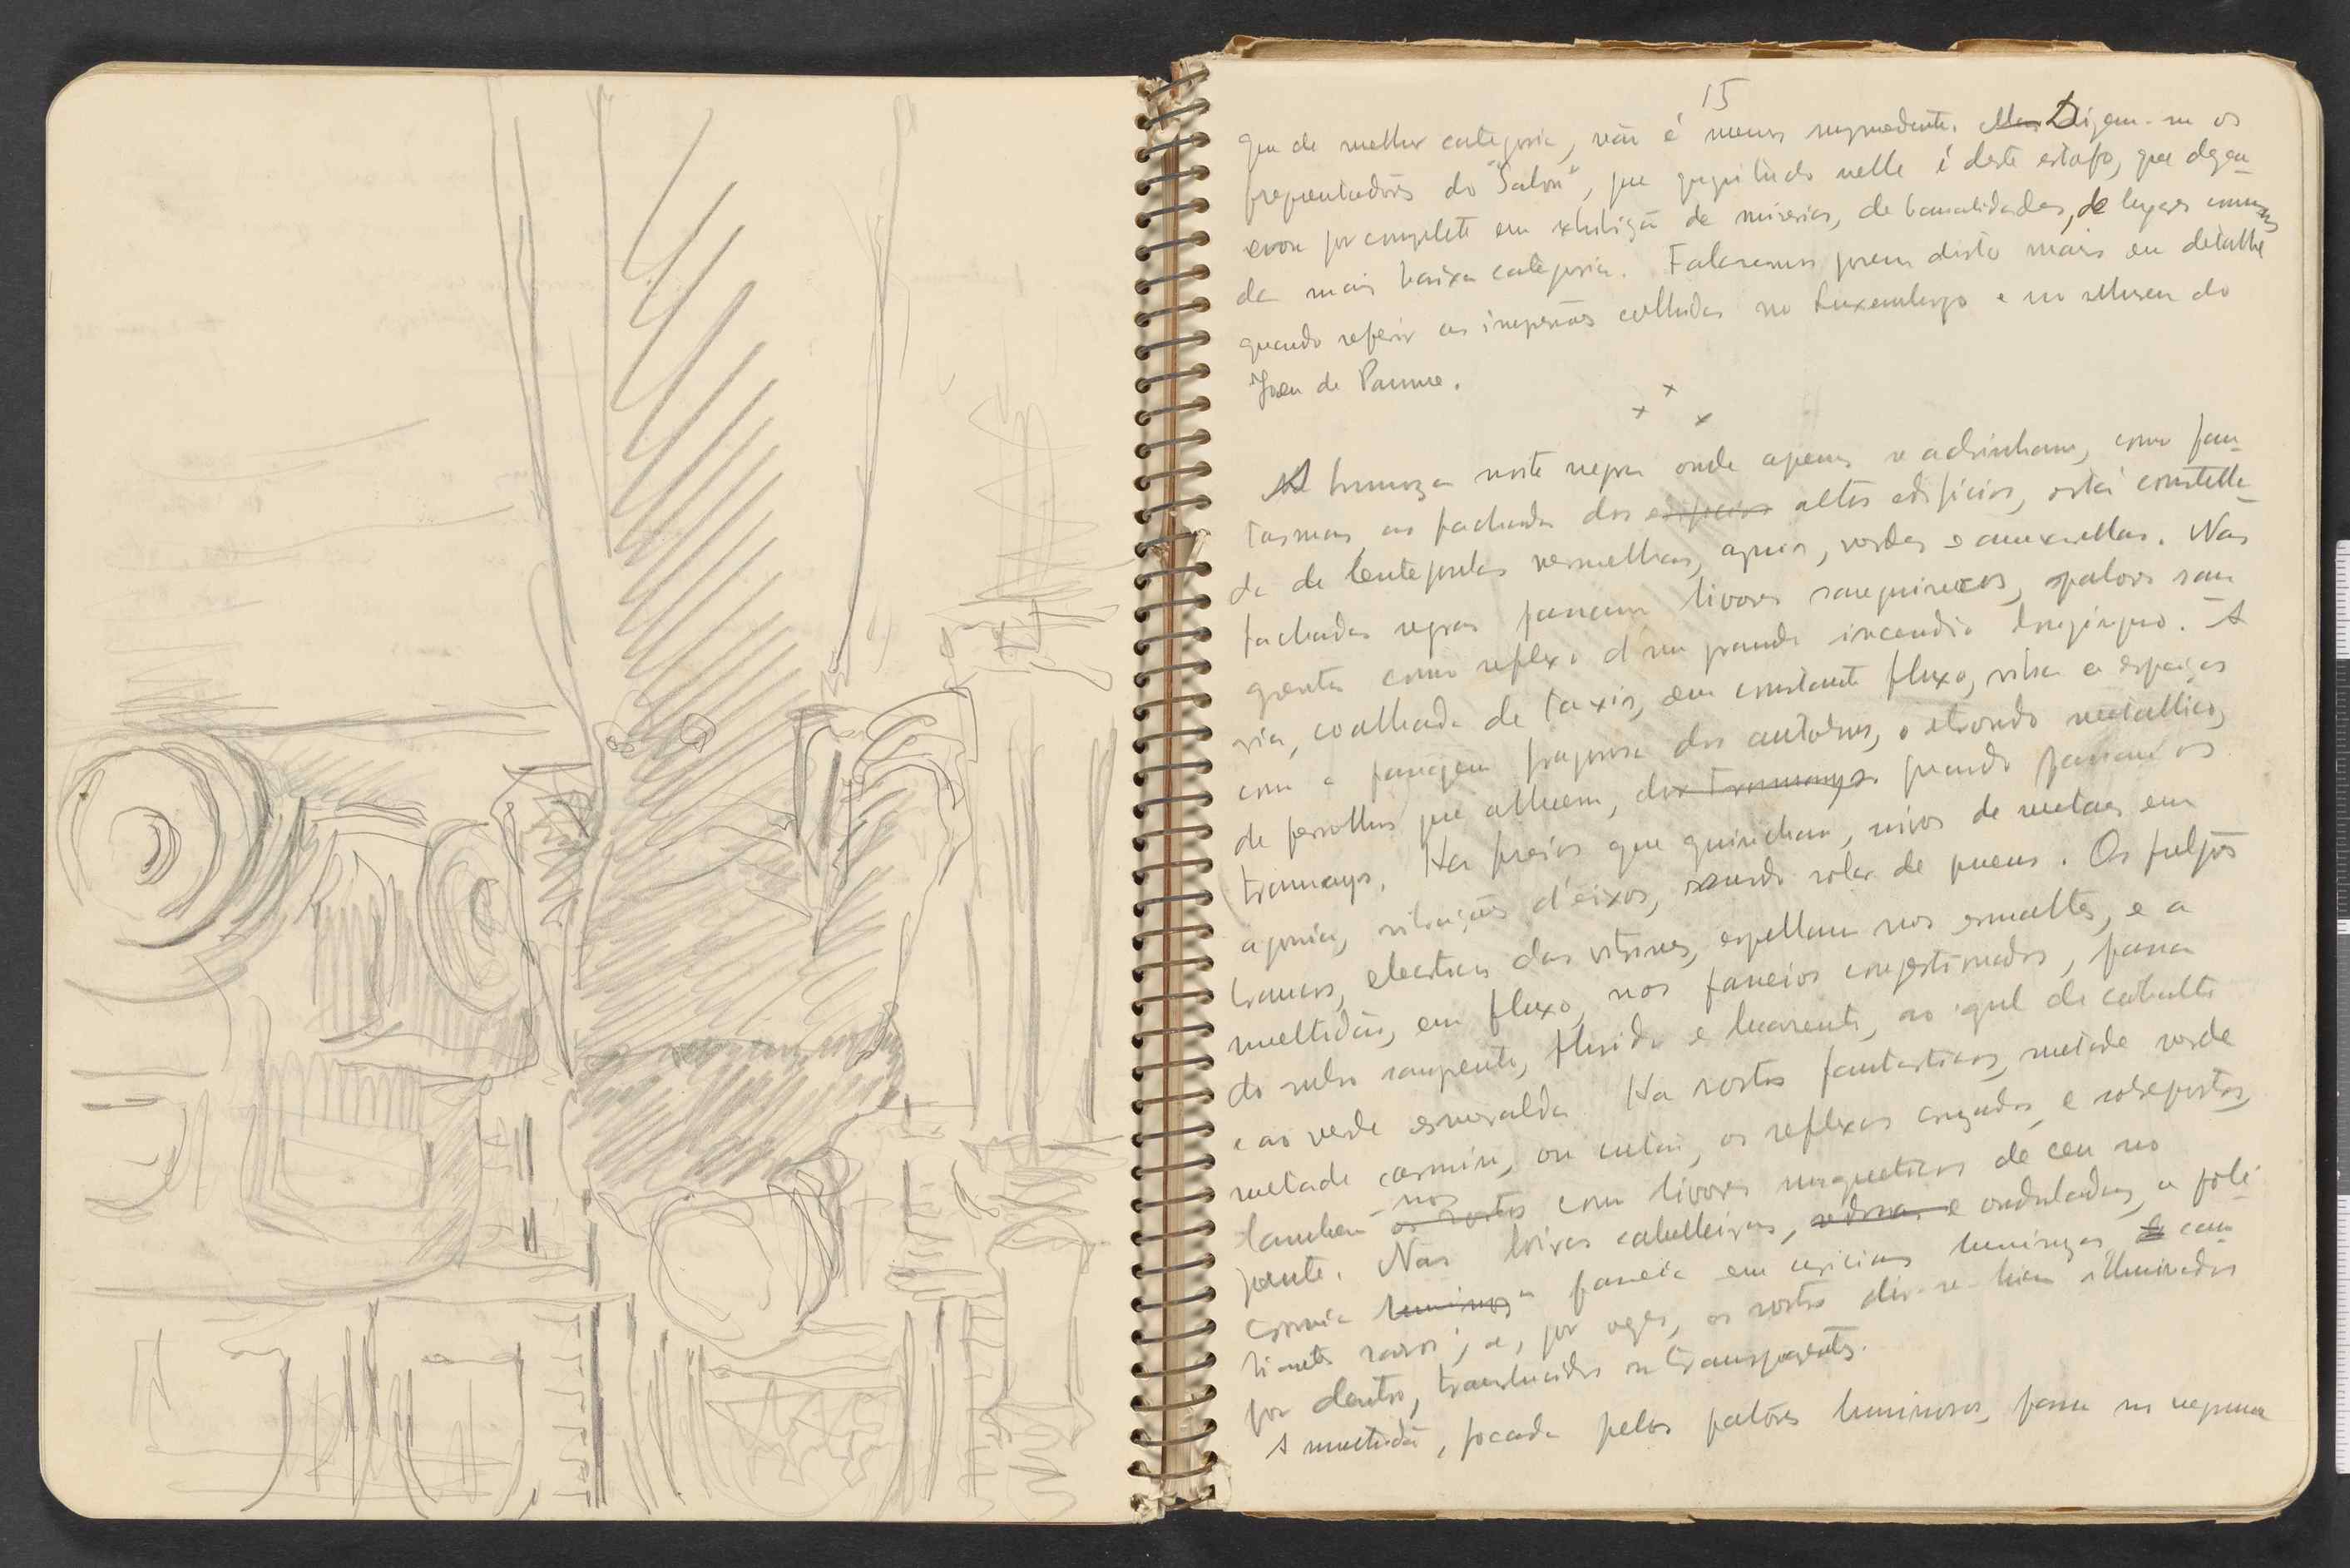 15
que de melhor categoria, não é menos surprehendente. Mas Dizem-me os
frequentadores do "Salon", que quasi tudo nelle é deste estofo, que degen-
erou por completo em exhibição de miserias, de banalidades, de lugares communs
da mais baixa categoria. Falaremos porem disto mais em detalhe
quando referir as impressões colhidas no Luxemburgo e no Museu do
Jeu de Paume.
x x x
A brumoza noite negra onde apenas se adivinham, como fan-
tasmas as fachadas dos altos edificios, está constella-
da de lentejoulas vermelhas, azues, verdes e amarellas. Nas
fachadas negras passam livores sanguineos, palores san-
grentos como reflexo d'um grande incendio longinquo. A
via, coalhada de taxis, em constante fluxo, vibra a espaços
com a passagem fragorosa dos autobus, o estrondo metallico,
de ferrolhos que alluem, dos tramways quando passam os
tramways. Ha freios que guincham, uivos de metaes em
agonia, vibrações d'eixos, surdo rolar de pneus. Os fulgores
brancos, electricos das vitrines, espelham nos esmaltes, e a
multidão, em fluxo, nos passeios congestionados, passa
do rubro sangrento, fluido e luarento, ao azul de cobalto
e ao verde esmeralda. Ha rostos fantasticos, metade verde
metade carmin, ou então, os reflexos cruzados e sobrepostos,
tambem os rostos nos com livores magneticos de ceu no
poente. Nas loiras cabelleiras, e onduladas, a poli-
cromia luminosa passeia em caricias luminozas e cam-
biantes raros; e, por vezes, os rostos dir-se-hiam illuminados
por dentro, translucidos ou transparentes.
A multidão, focada pelos palores luminosos, passa na negrura